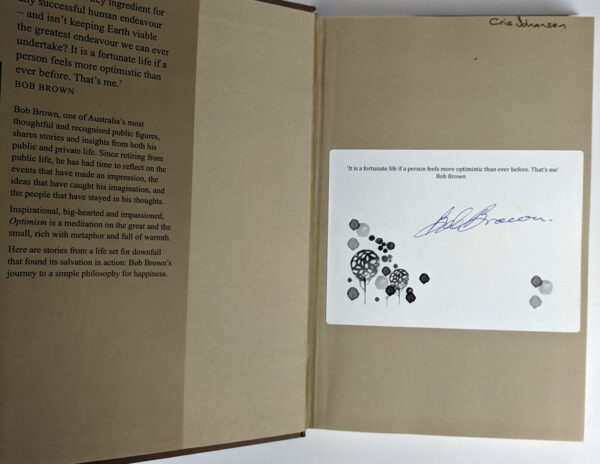 ingredient for
any successful human endeavour
– and isn't keeping Earth viable
the greatest endeavour we can ever
undertake? It is a fortunate life if a
person feels more optimistic than
ever before. That's me.'
BOB BROWN
Bob Brown, one of Australia's most
thoughtful and recognised public figures,
shares stories and insights from both his
public and private life. Since retiring from
public life, he has had time to reflect on the
events that have made an impression, the
ideas that have caught his imagination, and
the people that have stayed in his thoughts.
Inspirational, big-hearted and impassioned,
Optimism is a meditation on the great and the
small, rich with metaphor and full of warmth.
Here are stories from a life set for downfall
that found its salvation in action: Bob Brown's
journey to a simple philosophy for happiness.
Cris Johansen
'It is a fortunate life if a person feels more optimistic than ever before. That's me'
Bob Brown
Bob Brown